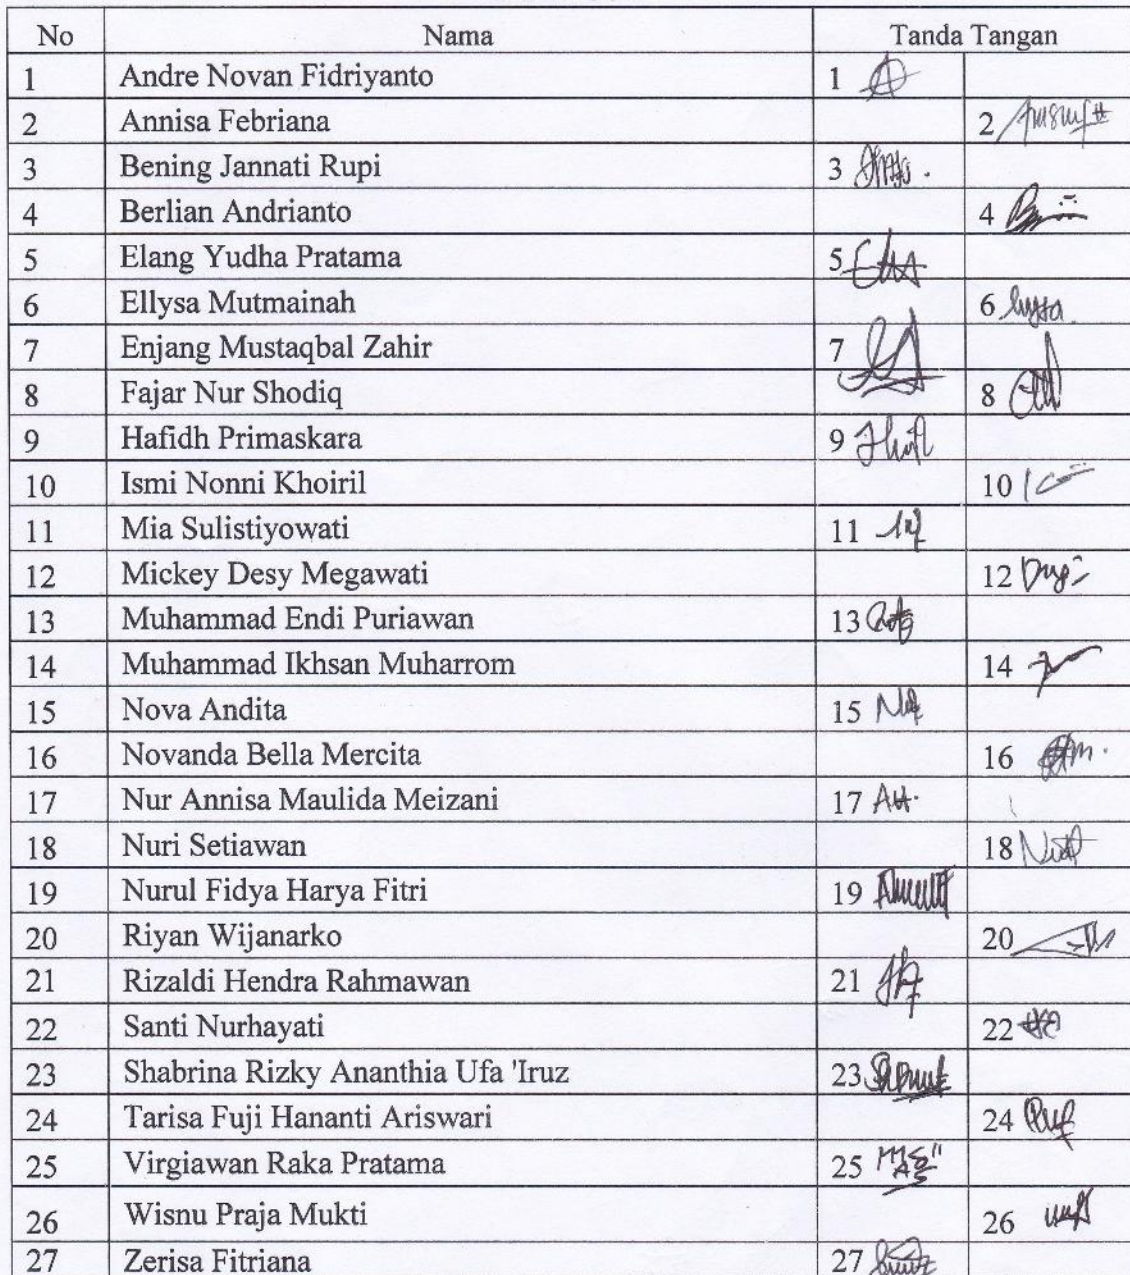 No Nama Tanda Tangan
1 Andre Novan Fidriyanto 1
2 Annisa Febriana 2
3 Bening Jannati Rupi 3
4 Berlian Andrianto 4
5 Elang Yudha Pratama 5
6 Ellysa Mutmainah 6
7 Enjang Mustaqbal Zahir 7
8 Fajar Nur Shodiq 8
9 Hafidh Primaskara 9
10 Ismi Nonni Khoiril 10
11 Mia Sulistiyowati 11
12 Mickey Desy Megawati 12
13 Muhammad Endi Puriawan 13
14 Muhammad Ikhsan Muharrom 14
15 Nova Andita 15
16 Novanda Bella Mercita 16
17 Nur Annisa Maulida Meizani 17
18 Nuri Setiawan 18
19 Nurul Fidya Harya Fitri 19
20 Riyan Wijanarko 20
21 Rizaldi Hendra Rahmawan 21
22 Santi Nurhayati 22
23 Shabrina Rizky Ananthia Ufa 'Iruz 23
24 Tarisa Fuji Hananti Ariswari 24
25 Virgiawan Raka Pratama 25
26 Wisnu Praja Mukti 26
27 Zerisa Fitriana 27